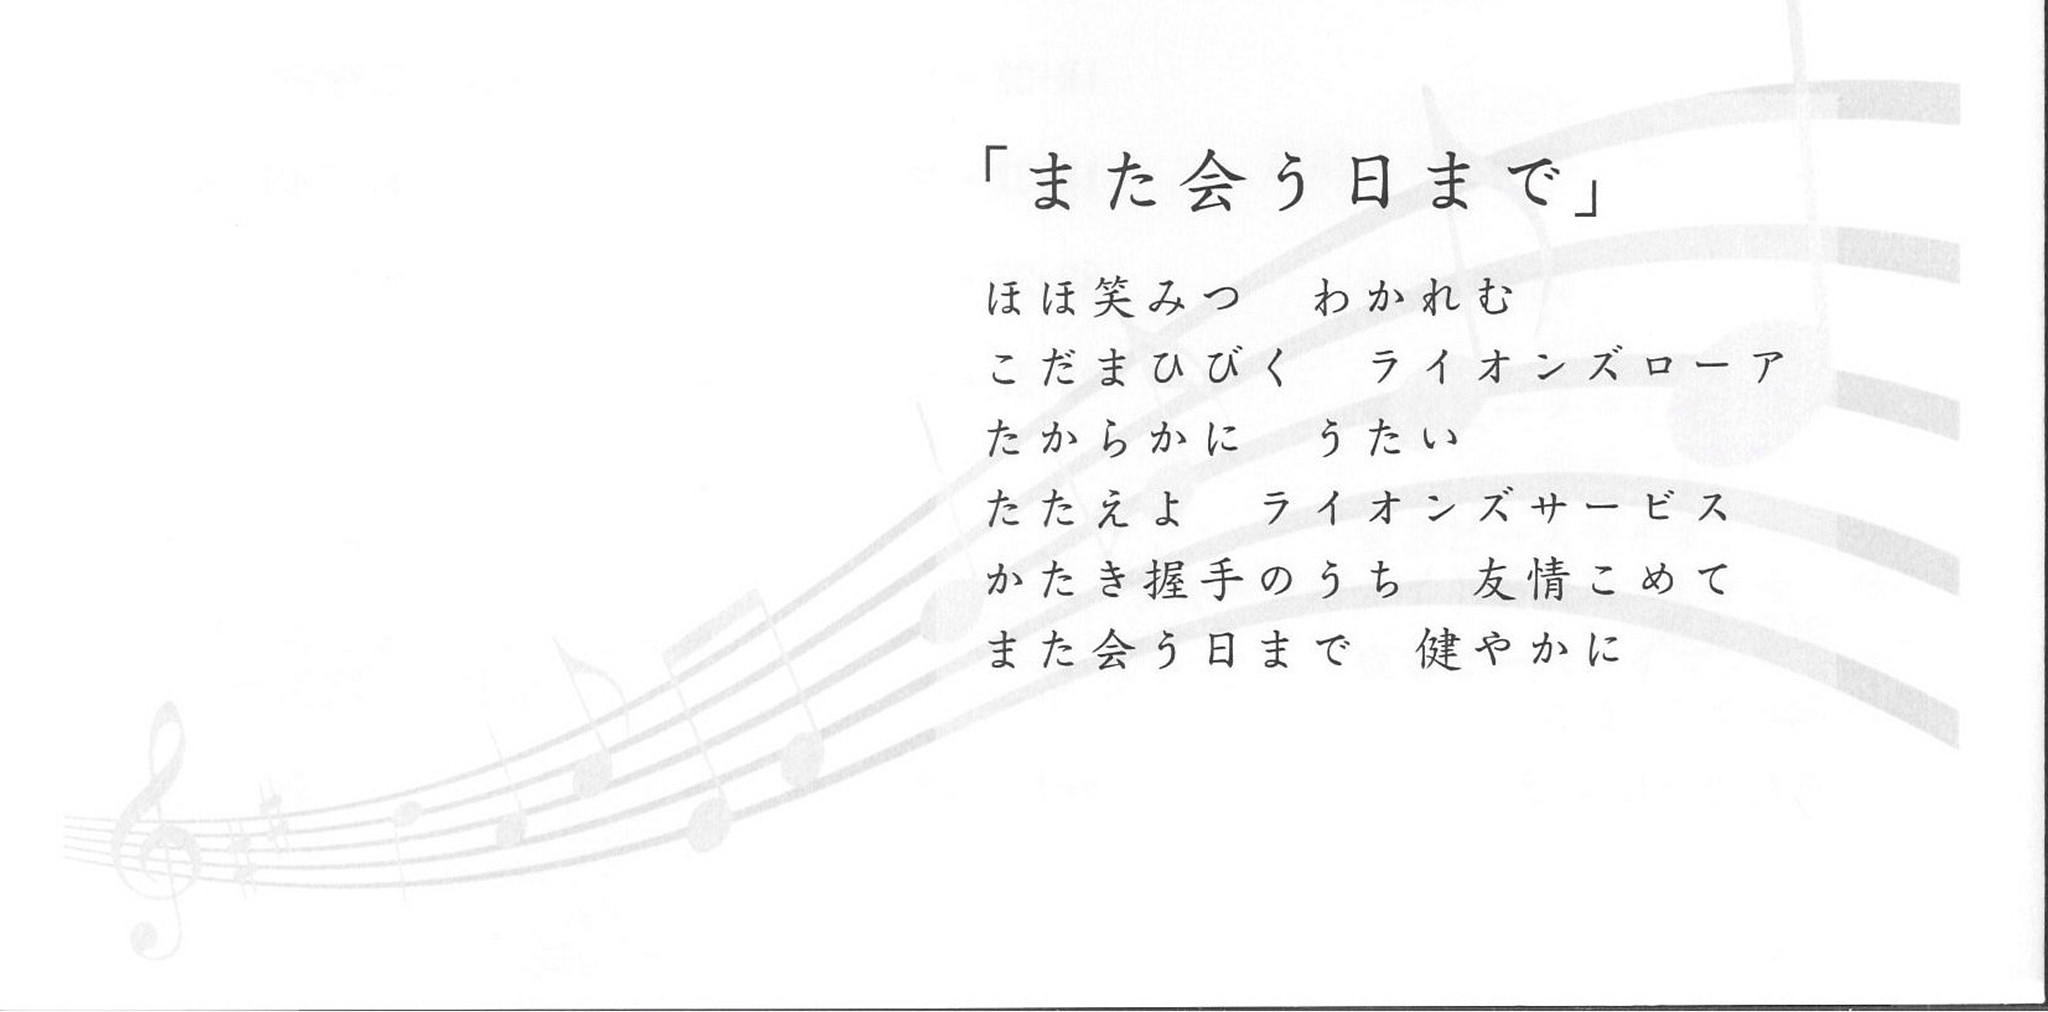 「また会う日まで」
ほほ笑みつ　わかれむ
こだまひびく　ライオンズローア
たからかに　うたい
たたえよ　ライオンズサービス
かたき握手のうち　友情こめて
また会う日まで　健やかに